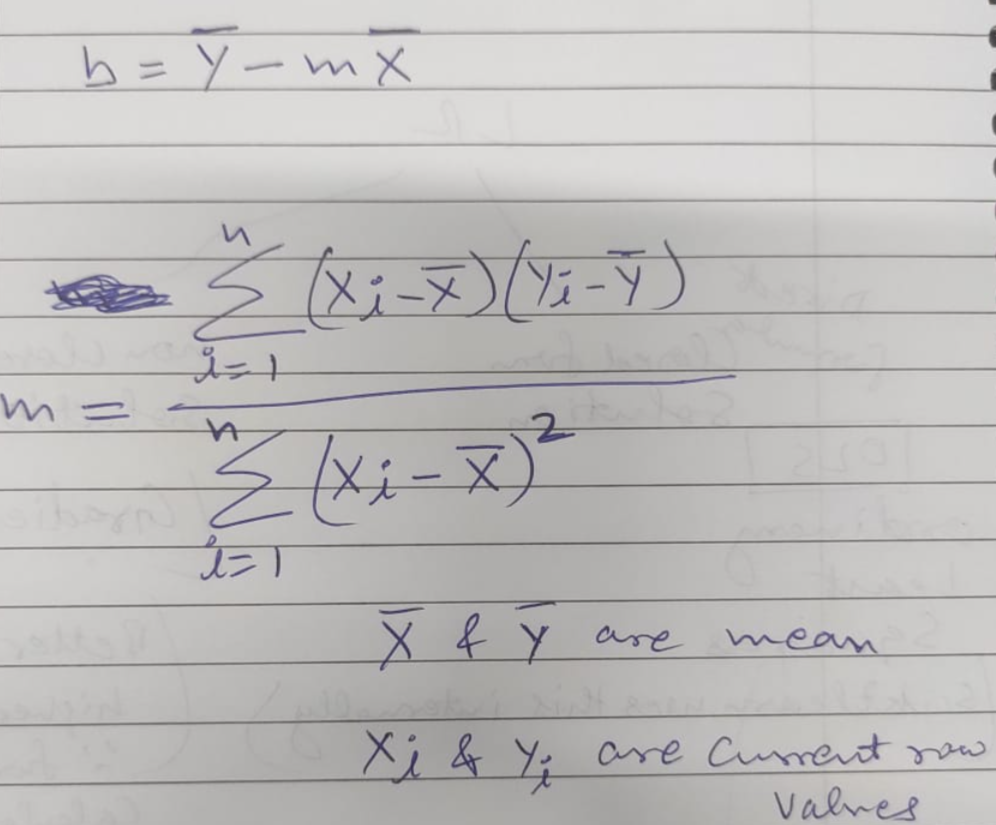 b = Y̅ - m X̅
n
∑ (Xi - X̅)(Yi - Y̅)
i=1
m =
n
∑ (Xi - X̅)²
i=1
X̅ & Y̅ are mean
Xi & Yi are current row
values